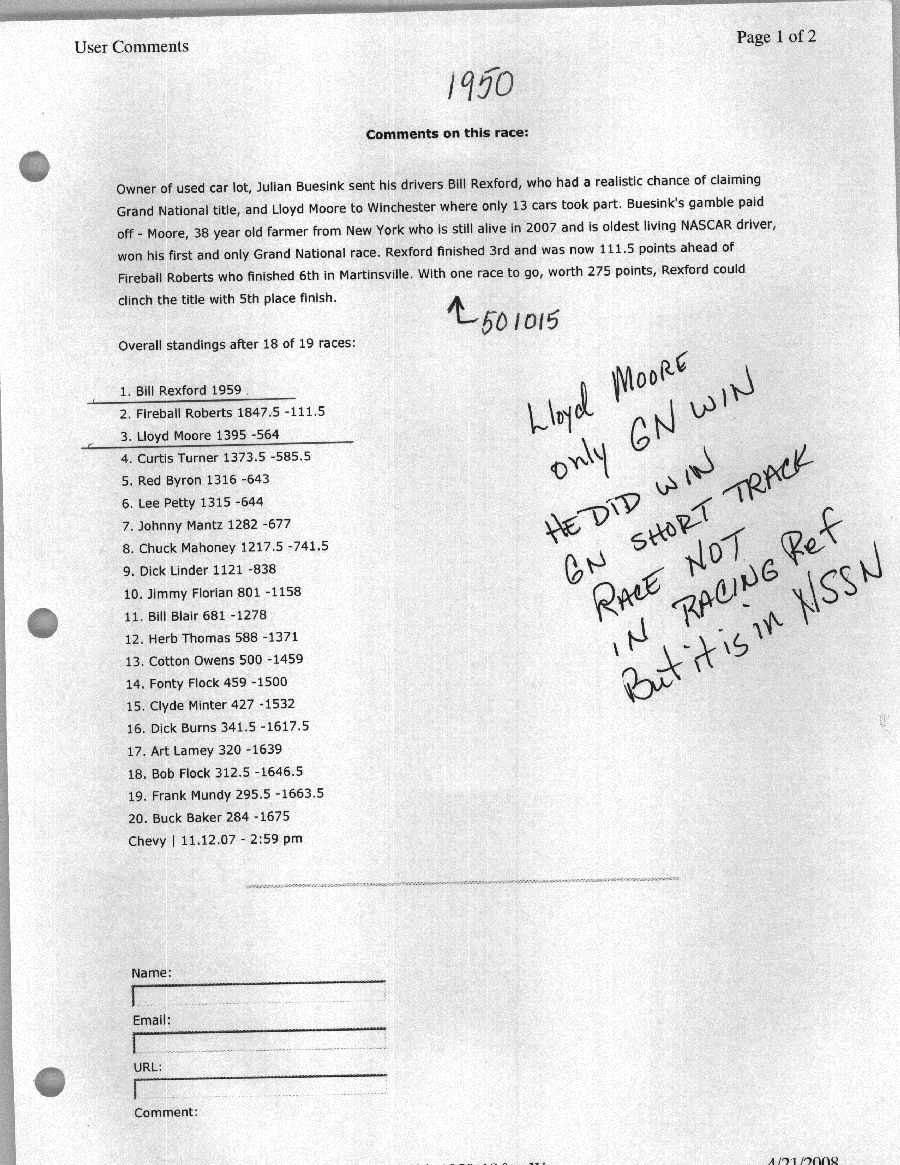 User Comments
Page 1 of 2
1950
Comments on this race:
Owner of used car lot, Julian Buesink sent his drivers Bill Rexford, who had a realistic chance of claiming
Grand National title, and Lloyd Moore to Winchester where only 13 cars took part. Buesink's gamble paid
off - Moore, 38 year old farmer from New York who is still alive in 2007 and is oldest living NASCAR driver,
won his first and only Grand National race. Rexford finished 3rd and was now 111.5 points ahead of
Fireball Roberts who finished 6th in Martinsville. With one race to go, worth 275 points, Rexford could
clinch the title with 5th place finish.
501015
Overall standings after 18 of 19 races:
1. Bill Rexford 1959
2. Fireball Roberts 1847.5 -111.5
3. Lloyd Moore 1395 -564
4. Curtis Turner 1373.5 -585.5
5. Red Byron 1316 -643
6. Lee Petty 1315 -644
7. Johnny Mantz 1282 -677
8. Chuck Mahoney 1217.5 -741.5
9. Dick Linder 1121 -838
10. Jimmy Florian 801 -1158
11. Bill Blair 681 -1278
12. Herb Thomas 588 -1371
13. Cotton Owens 500 -1459
14. Fonty Flock 459 -1500
15. Clyde Minter 427 -1532
16. Dick Burns 341.5 -1617.5
17. Art Lamey 320 -1639
18. Bob Flock 312.5 -1646.5
19. Frank Mundy 295.5 -1663.5
20. Buck Baker 284 -1675
Chevy | 11.12.07 - 2:59 pm
Lloyd MOORE
only GN WIN
HE DID WIN
GN SHORT TRACK
RACE NOT
IN RACING Ref
But it is in NSSN
Name:
Email:
URL:
Comment:
4/21/2008